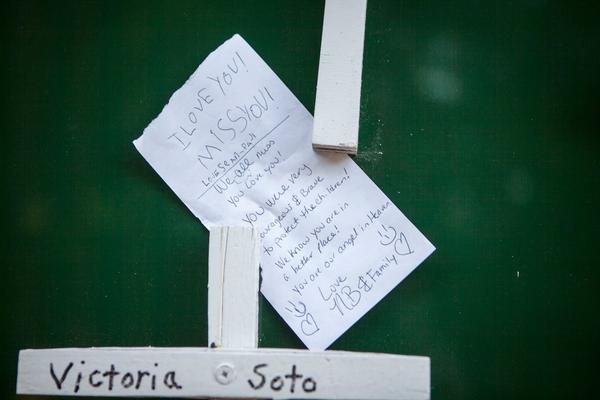 I LOVE YOU!
MISS YOU!
LOVE SEAN-PAUL
We all miss
You Love You!
You were very
courageous & Brave
to protect the children!
We know you are in
a better place!
You are our angel in Heaven
Love
NB & Family
Victoria Soto